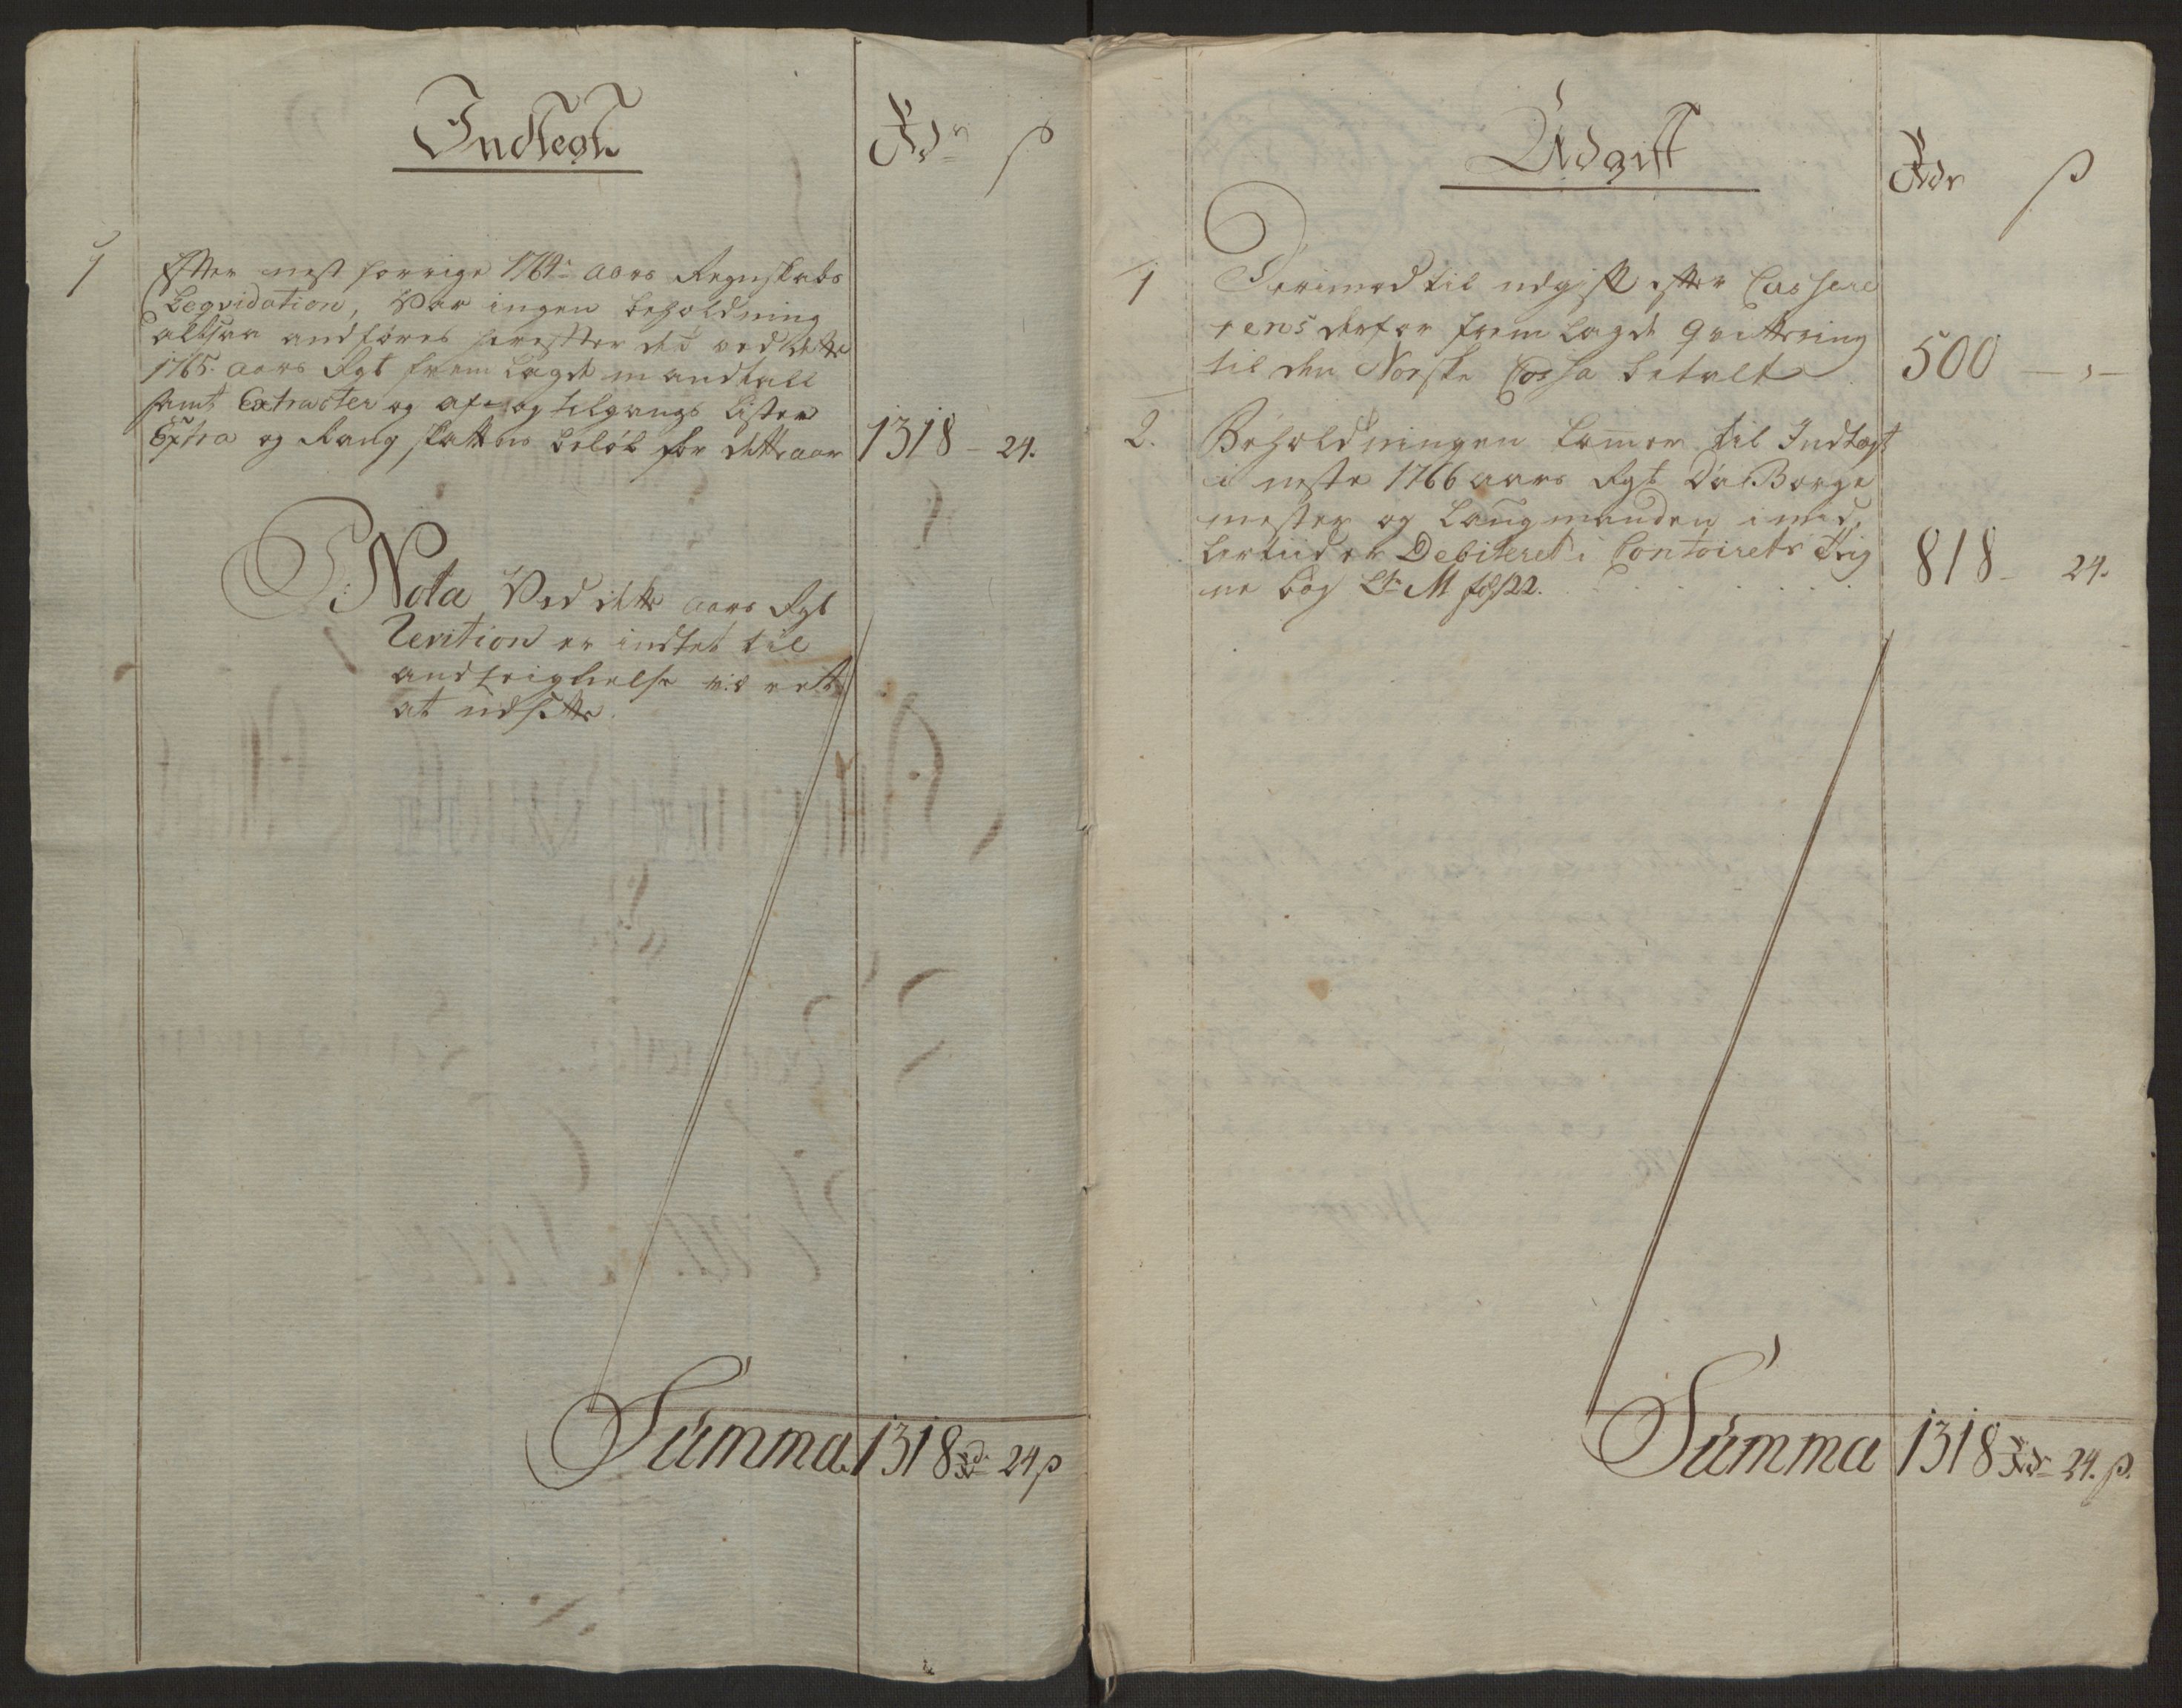 Indtegt
Rdr ß
1 Efter nest forrige 1764de aars Regnskabs
Leqvidation, Var ingen beholdning
altsaa andføres herefter det ved dette
1765. aars Rgb frem lagde mandtall
samt Extracter og af- og tilgangs Lister
Extra og Rang skattens beløb for dette aar 1318 - 24.
Nota Ved dette aars Rgb
Revition er indtet til
andteignelse ved rett
at udsette.
Summa 1318 Rdr 24 ß
Udgift
Rdr ß
1 Derimod til udgift efter Cassere
rens derfor frem lagde qvittering
til den Norske Cassa betalt 500 - „ -
2. Beholdningen kommer til Indtægt
i neste 1766 aars Rgb da Borge
mester og Laugmanden imid
lertiid er Debiteret i Contoirets
ne bog Ltr M fol 22. 818 - 24.
Summa 1318 Rdr 24. ß.